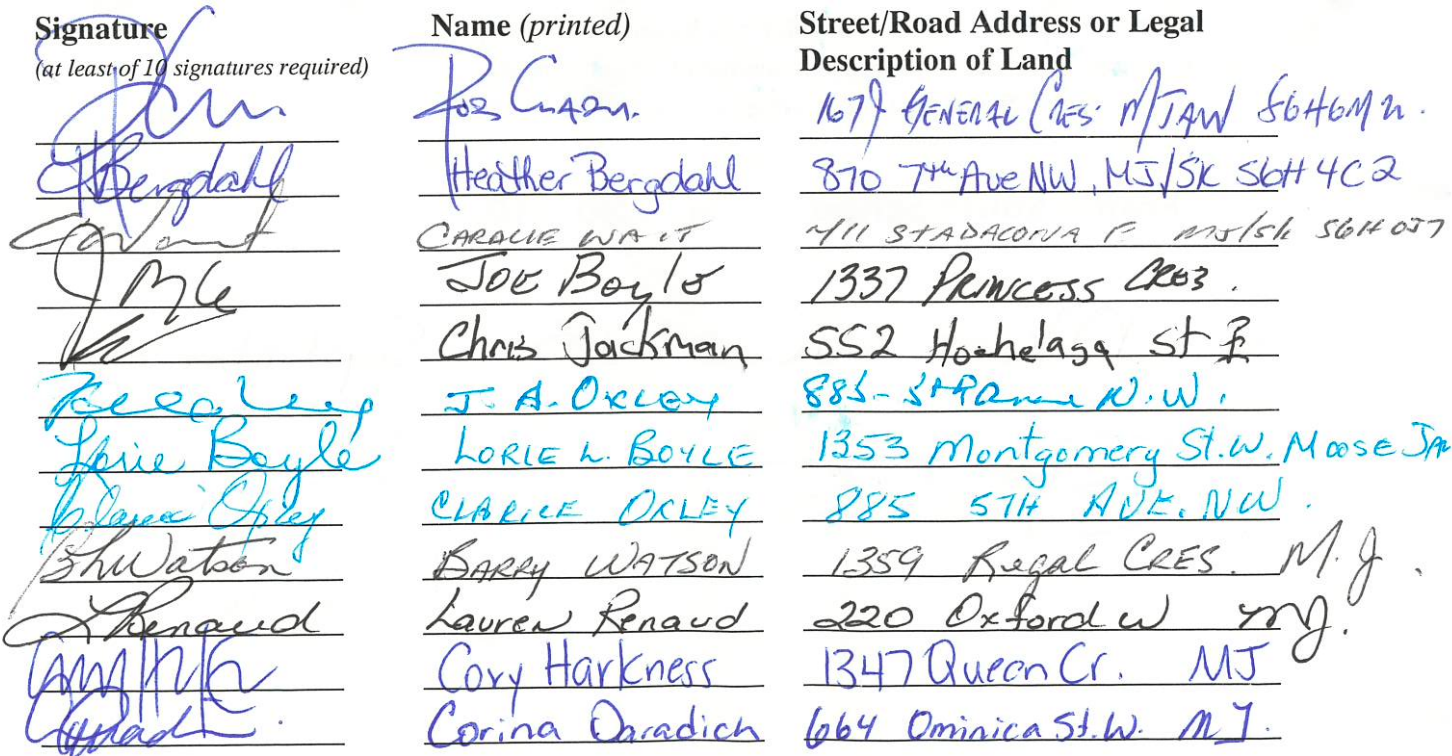 Signature Name (printed) Street/Road Address or Legal
(at least of 10 signatures required) Description of Land
GENERAL CRES. M/JAW S6H6M2.
Bergdahl Heather Bergdahl 870 7th Ave NW, MJ/SK S6H 4C2
WAIT STADACONA MJ/SK S6H 0J7
JOE Boyle 1337 PRINCESS CRES.
Chris Jackman 552 Hochelaga St E
J. A. OXLEY 885- N.W.
Lorie Boyle LORIE L. BOYLE 1353 Montgomery St. W. Moose JAW
Clarice Oxley CLARICE OXLEY 885 5TH AVE. NW.
BhWatson BARRY WATSON 1359 Regal CRES. M.J.
LRenaud Lauren Renaud 220 Oxford W MJ.
Cory Harkness 1347 Queen Cr. MJ
Corina Daradich 664 Ominica St. W. MJ.